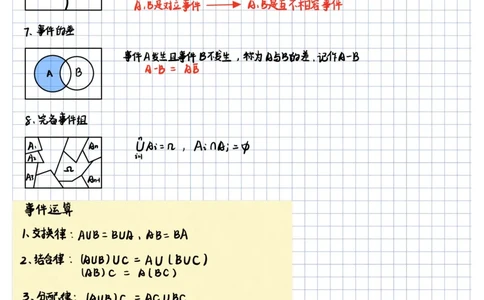 A,B是对立事件 → A,B是互不相容事件
7. 事件的差
事件A发生且事件B不发生，称为A与B的差，记作A-B
A-B = AB̅
A B
8. 完备事件组
A₁ Aₙ
A₂
Ω
A₃ Aₙ₋₁
⋃ⁿᵢ₌₁Aᵢ=Ω , Aᵢ∩Aⱼ=ϕ
事件运算
1. 交换律: A∪B=B∪A , AB=BA
2. 结合律: (A∪B)∪C = A∪(B∪C)
(AB)C = A(BC)
3. 分配律: (A∪B)C = AC∪BC